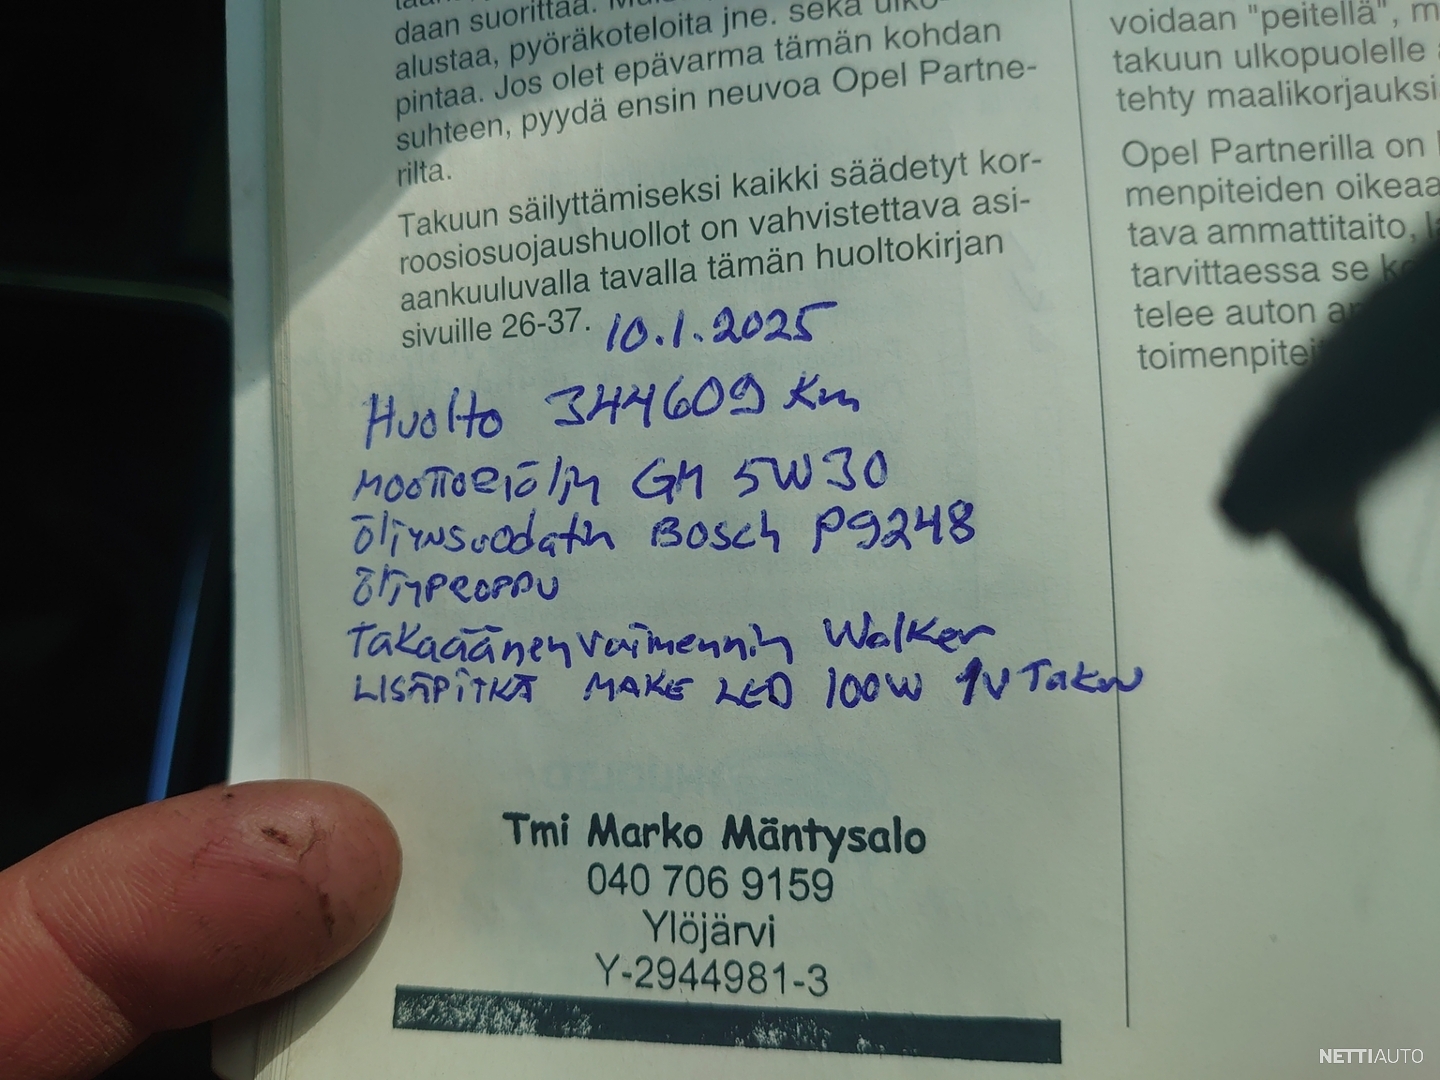 daan suorittaa.
alustaa, pyöräkoteloita jne. sekä ulko-
pintaa. Jos olet epävarma tämän kohdan
suhteen, pyydä ensin neuvoa Opel Partne-
rilta.
Takuun säilyttämiseksi kaikki säädetyt kor-
roosiosuojaushuollot on vahvistettava asi-
aankuuluvalla tavalla tämän huoltokirjan
sivuille 26-37.
10.1.2025
Huolto 344609 Km
moottoriöljy GM 5W30
öljynsuodatin Bosch P9248
öljyproppu
Takaäänenvaimennin Walker
LISÄPITKÄ MAKE LED 100W 1V Takuu
Tmi Marko Mäntysalo
040 706 9159
Ylöjärvi
Y-2944981-3
voidaan "peitellä", m
takuun ulkopuolelle
tehty maalikorjauksi
Opel Partnerilla on
menpiteiden oikeaa
tava ammattitaito,
tarvittaessa se
telee auton
toimenpitei
NETTIAUTO